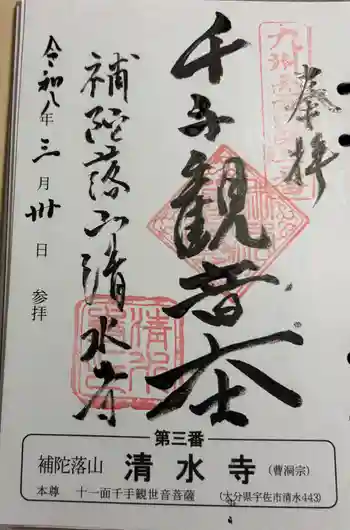 奉拝
千手観音大士
補陀落山清水寺
令和八年三月卅日参拝
第三番
補陀落山 清水寺 (曹洞宗)
本尊 十一面千手観世音菩薩 (大分県宇佐市清水443)